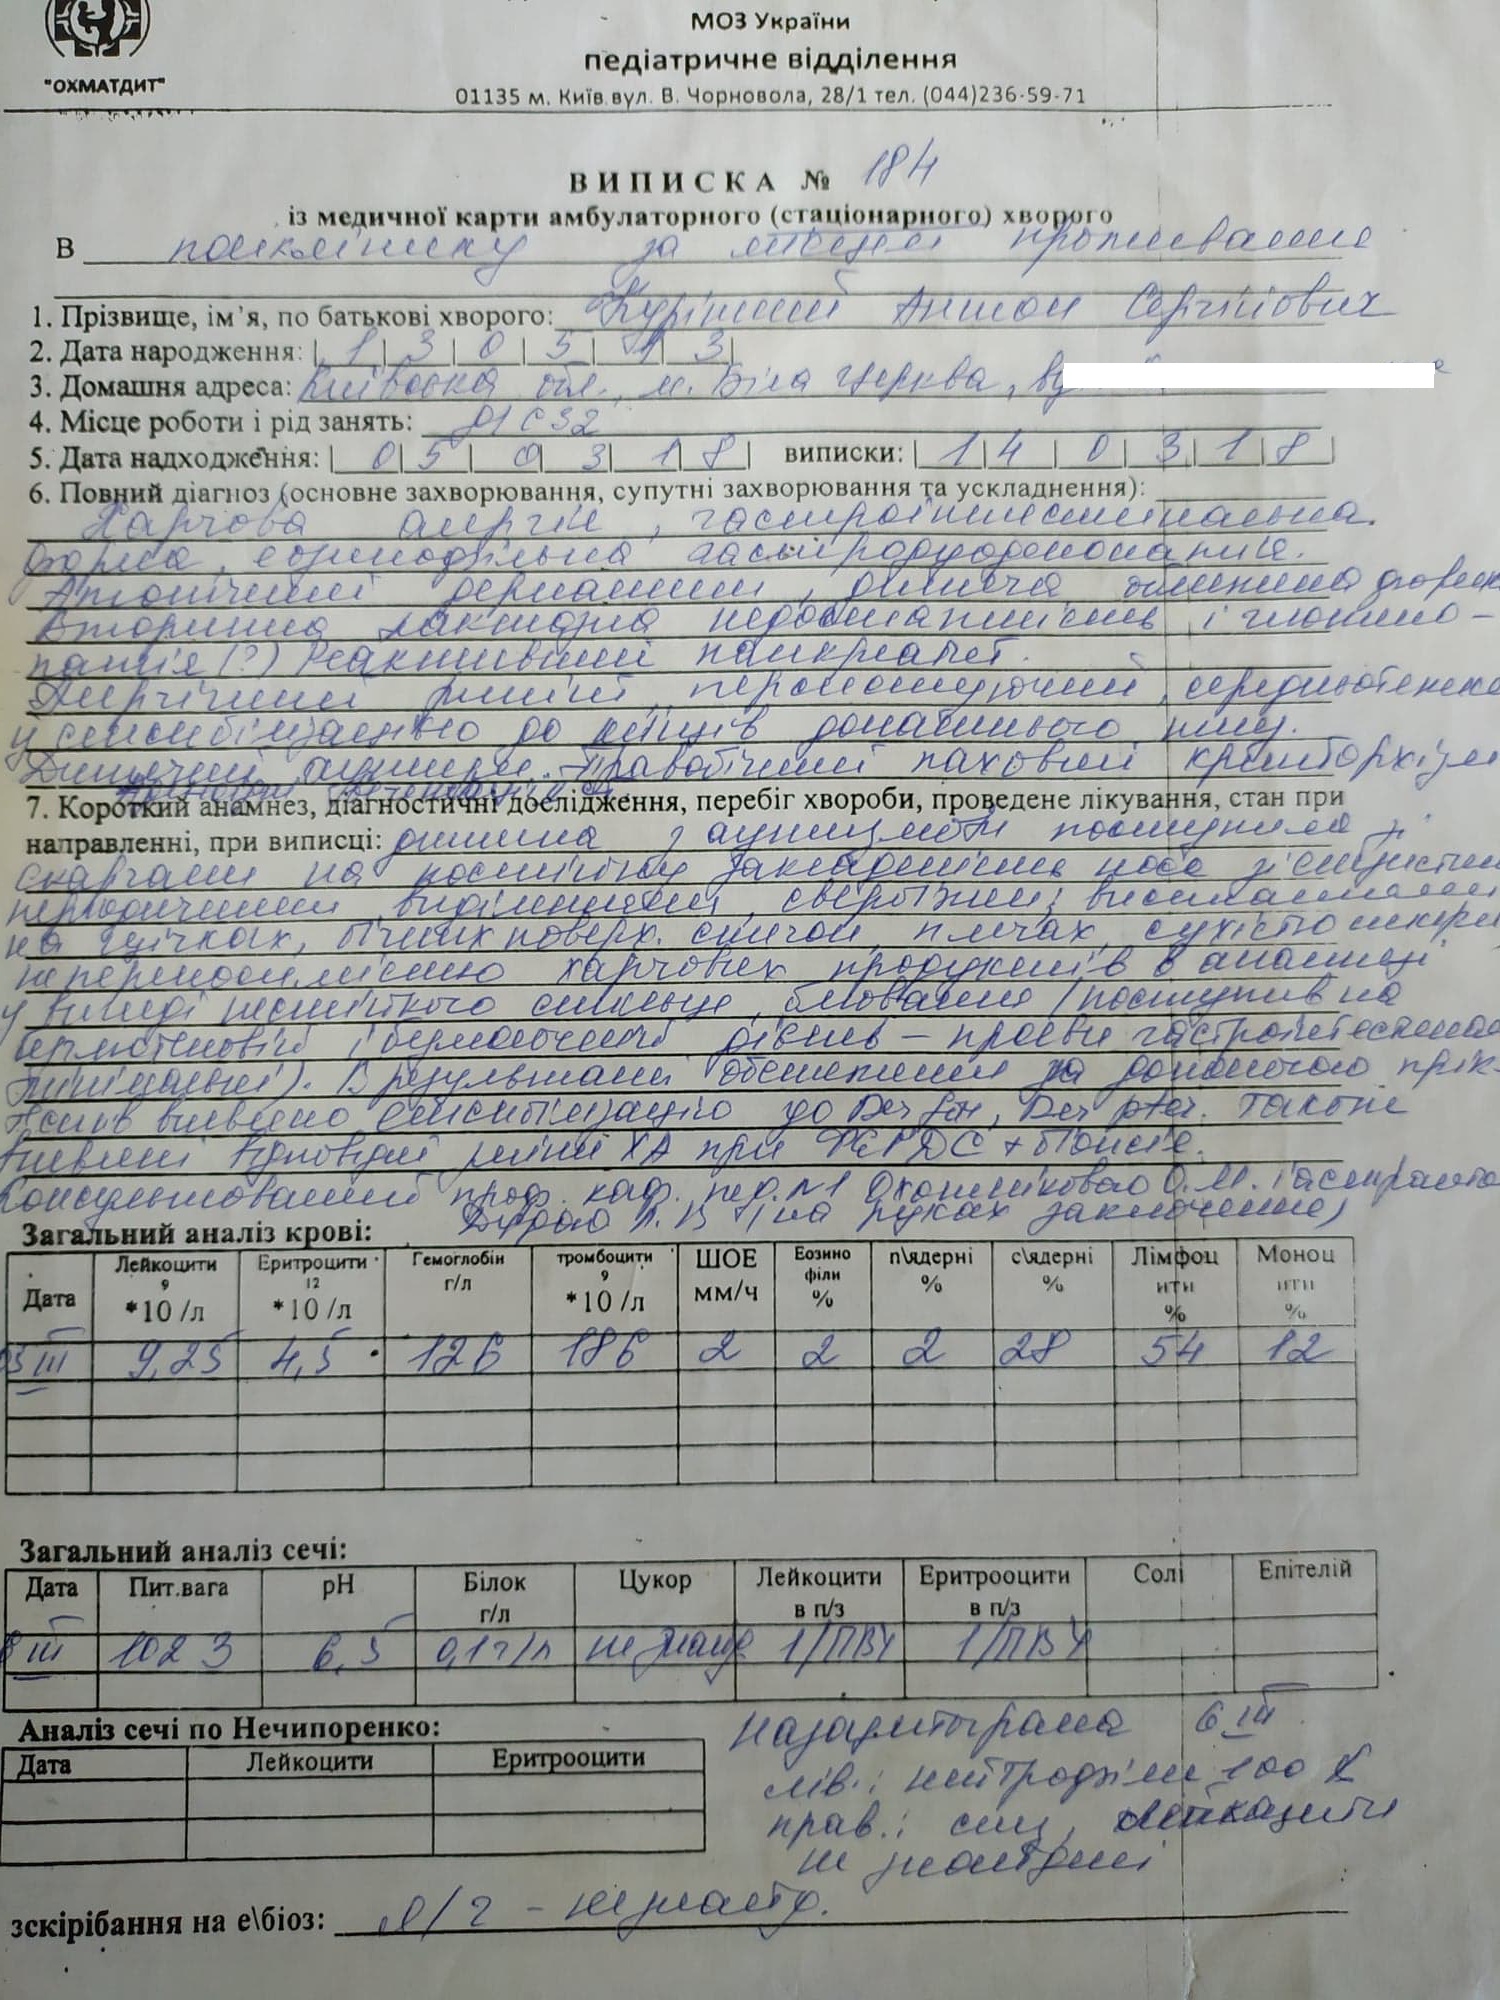 МОЗ України
педіатричне відділення
"ОХМАТДИТ"
01135 м. Київ вул. В. Чорновола, 28/1 тел. (044)236-59-71
ВИПИСКА № 184
із медичної карти амбулаторного (стаціонарного) хворого
В поліклініку за місцем проживання
1. Прізвище, ім’я, по батькові хворого: Антон Сергійович
2. Дата народження: 1 3 0 5 1 3
3. Домашня адреса: Київська обл., м. Біла Церква, ву
4. Місце роботи і рід занять: ДНЗ
5. Дата надходження: 0 5 0 3 1 8 виписки: 1 4 0 3 1 8
6. Повний діагноз (основне захворювання, супутні захворювання та ускладнення):
Харчова алергія, гастроінтестинальна
форма, еозинофільна гастродуоденопатія.
Атопічний дерматит, дитяча обмежена форма
Вторинна лактазна недостатність і глютено-
патія (?) Реактивний панкреатит.
Алергічний риніт, персистуючий, середньотяжк
з сенсибілізацією до кліщів домашнього пилу.
Дитячий аутизм. Правобічний паховий крипторхізм
7. Короткий анамнез, діагностичні дослідження, перебіг хвороби, проведене лікування, стан при
направленні, при виписці: дитина з аутизмом поступила зі
скаргами на постійну закладеність носа зі слизистими
періодичними виділеннями, свербіжні висипання
на щічках, бічних поверх. стегон, плечах, сухістю шкіри
непереносимістю харчових продуктів в анамнезі
у вигляді нестійкого стільця, блювання (поступив на
безглютеновій і безмолочній дієті – прояви гастроінтестина
мінімальні). В результаті обстеження за допомогою прік-
тестів виявлено сенсибілізацію до Der far, Der pter. Також
виявлені відповідні зміни ХА при ФЕГДС + біопсія.
Консультований проф. каф. пед. №1 Охотніковою О.М.
(на руках заключення)
Загальний аналіз крові:
Дата Лейкоцити *10 9/л Еритроцити *10 12/л Гемоглобін г/л тромбоцити *10 9/л ШОЕ мм/ч Еозино філи % п\ядерні % с\ядерні % Лімфоц ити % Моноц ити %
5 III 9,25 4,5 126 186 2 2 2 28 54 12
Загальний аналіз сечі:
Дата Пит.вага pH Білок г/л Цукор Лейкоцити в п/з Еритрооцити в п/з Солі Епітелій
III 1023 6,5 0,1 г/л не знайд 1/ПВЧ 1/ПВЧ
Аналіз сечі по Нечипоренко:
Дата Лейкоцити Еритрооцити
Назацитограма 6 III
лів.: нейтрофіли 100 %
прав.: слиз, лейкоцити
не знайдені
зскірібання на е\біоз: Я/Г – не знайд.